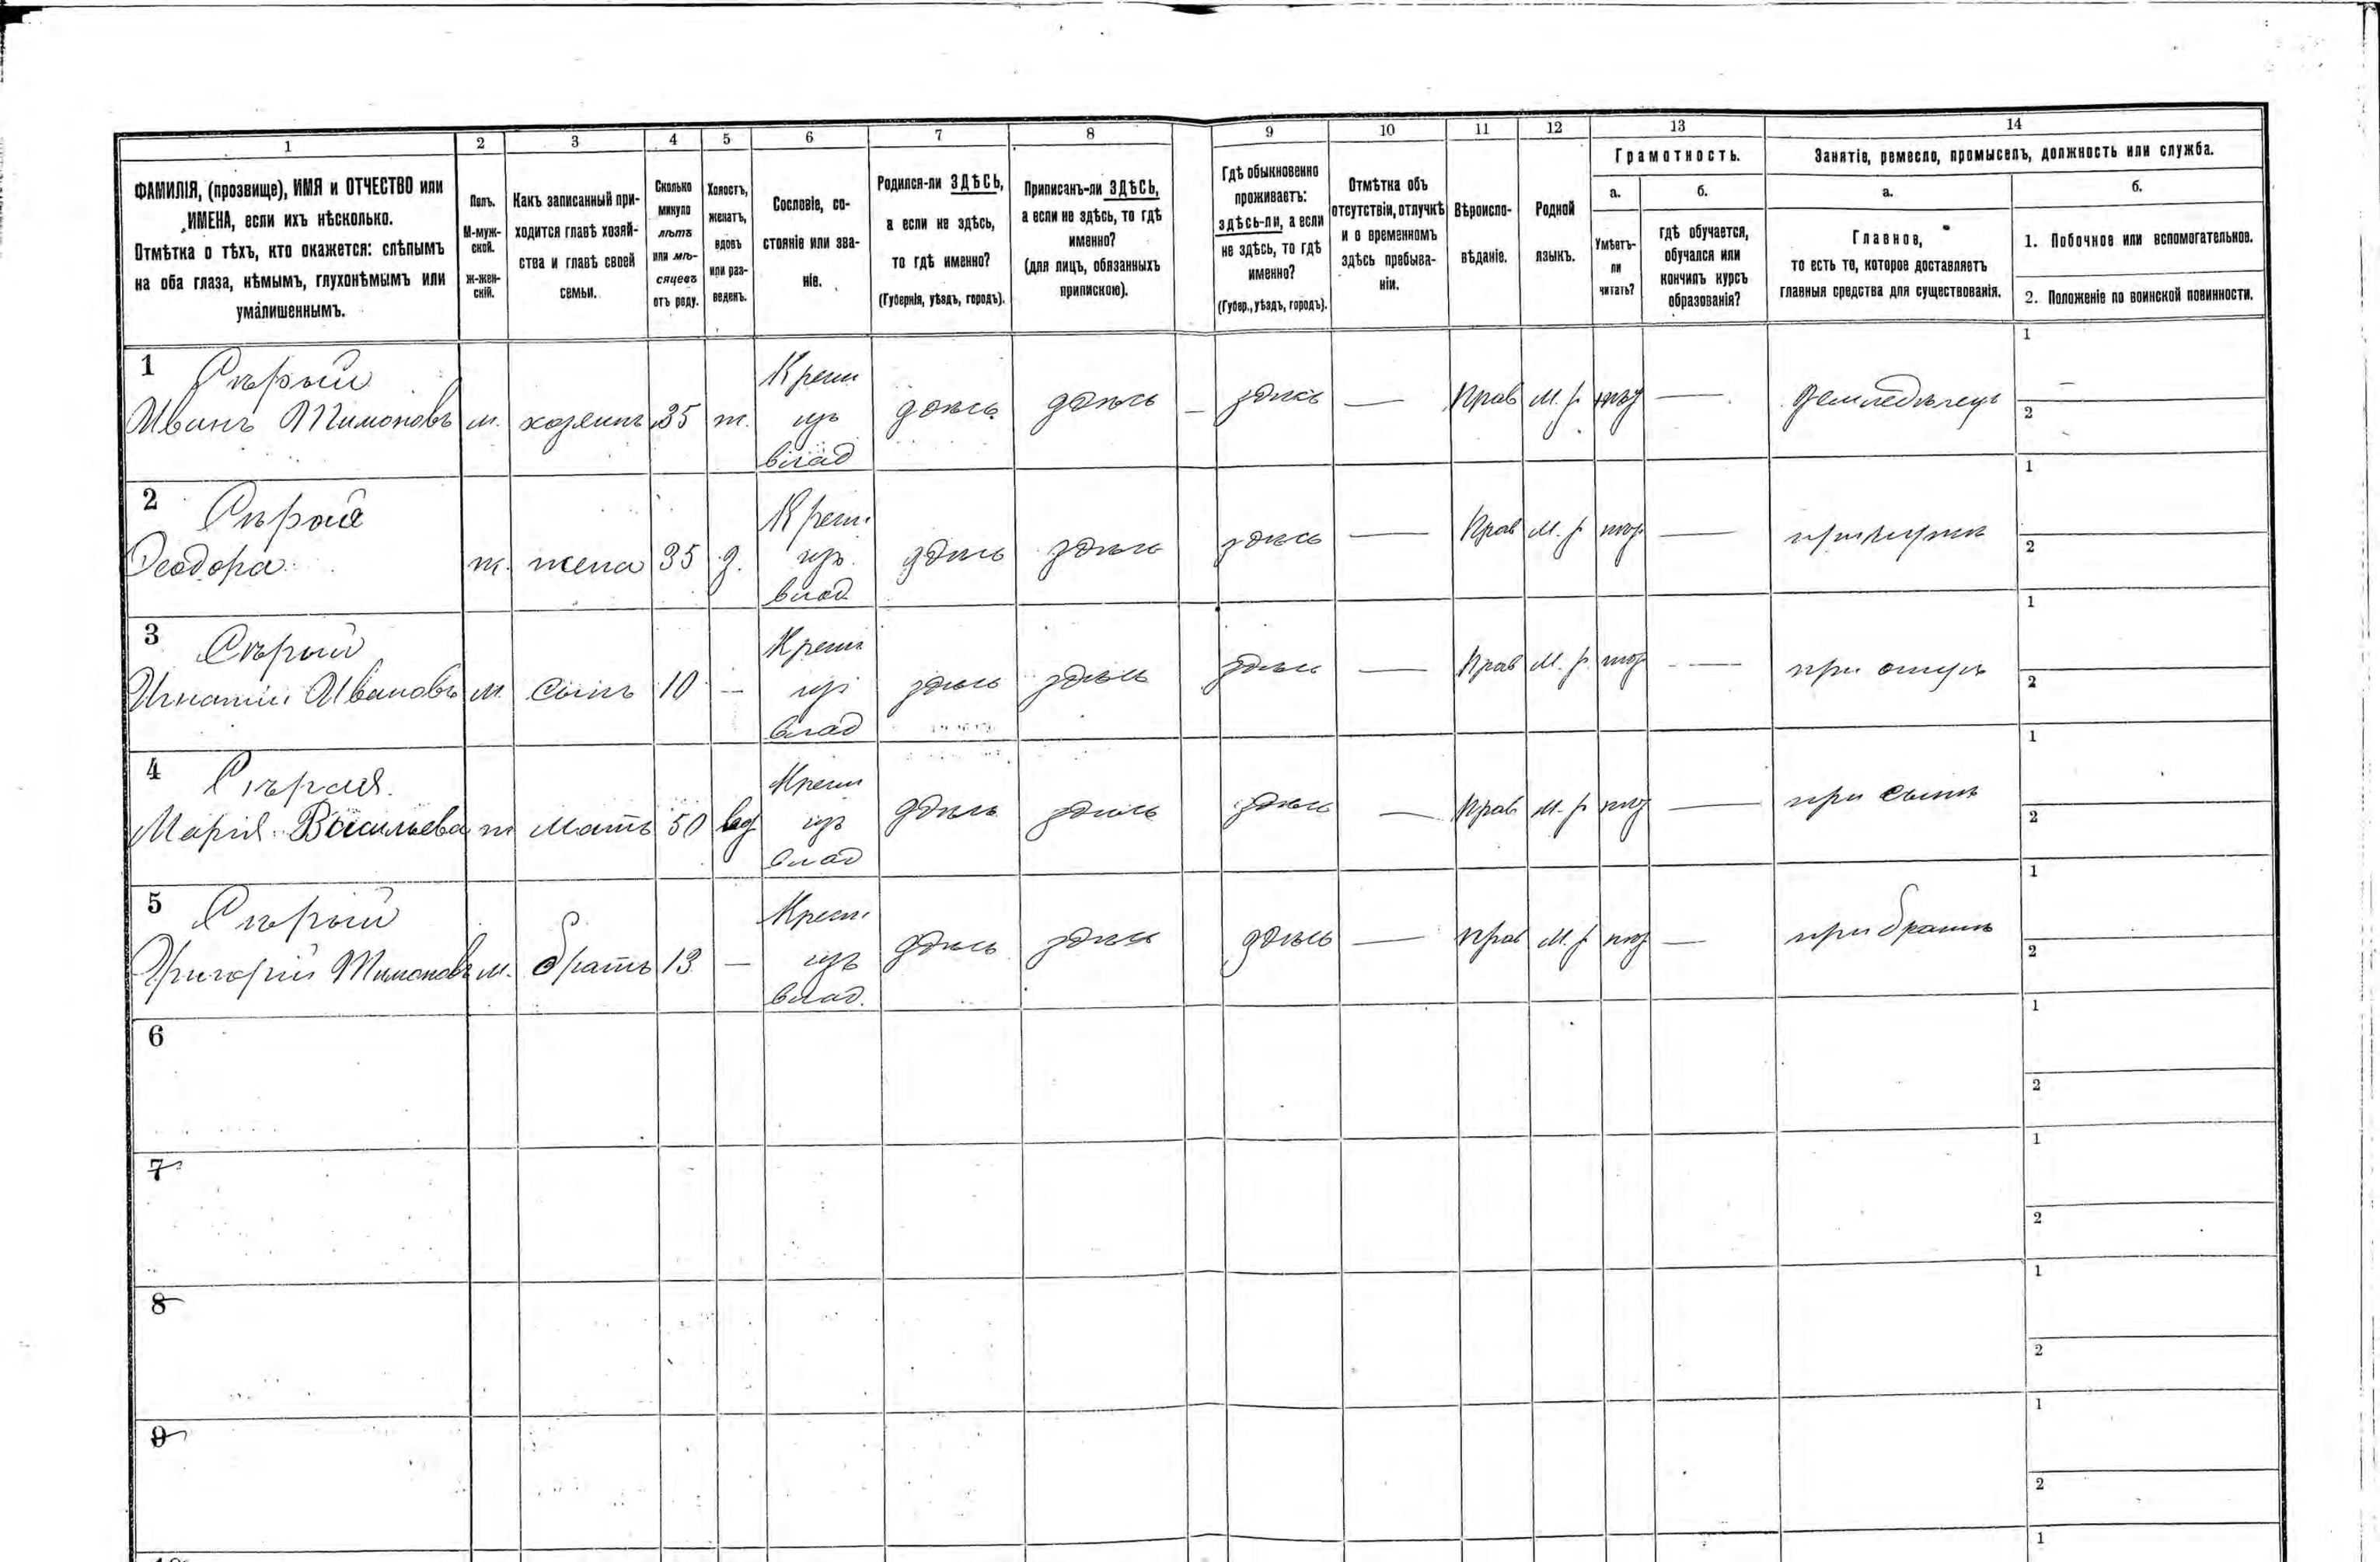 1 2 3 4 5 6 7 8 9 10 11 12 13 14
ФАМИЛІЯ, (прозвище), ИМЯ и ОТЧЕСТВО или
ИМЕНА, если ихъ нѣсколько.
Отмѣтка о тѣхъ, кто окажется: слѣпымъ
на оба глаза, нѣмымъ, глухонѣмымъ или
умалишеннымъ.
Полъ.
М-муж-
ской.
ж-жен-
скій.
Какъ записанный при-
ходится главѣ хозяй-
ства и главѣ своей
семьи.
Сколько
минуло
лѣтъ
или мѣ-
сяцевъ
отъ роду.
Холостъ,
женатъ,
вдовъ
или раз-
веденъ.
Сословіе, со-
стояніе или зва-
ніе.
Родился-ли ЗДѢСЬ,
а если не здѣсь,
то гдѣ именно?
(Губернія, уѣздъ, городъ).
Приписанъ-ли ЗДѢСЬ,
а если не здѣсь, то гдѣ
именно?
(для лицъ, обязанныхъ
припискою).
Гдѣ обыкновенно
проживаетъ:
здѣсь-ли, а если
не здѣсь, то гдѣ
именно?
(Губер., уѣздъ, городъ).
Отмѣтка объ
отсутствіи, отлучкѣ
и о временномъ
здѣсь пребыва-
ніи.
Вѣроиспо-
вѣданіе.
Родной
языкъ.
Грамотность.
а.
Умѣетъ-
ли
читать?
б.
гдѣ обучается,
обучался или
кончилъ курсъ
образованія?
Занятіе, ремесло, промыселъ, должность или служба.
а.
Главное,
то есть то, которое доставляетъ
главныя средства для существованія.
б.
1. Побочное или вспомогательное.
2. Положеніе по воинской повинности.
1 Сѣрый Крест
Иванъ Тимоновъ м. хозяинъ 35 ж. изъ здѣсь здѣсь — здѣсь — Прав М. р. нѣт — земледѣлецъ
влад
1
2
2 Сѣрая Крест.
Феодора ж. жена 35 з. изъ здѣсь здѣсь здѣсь — Прав М. р — при мужѣ
влад
1
2
3 Сѣрый Крест
Игнатій Ивановъ м. сынъ 10 — из здѣсь здѣсь здѣсь — Прав М. р. — при отцѣ
влад
1
2
4 Сѣрая Крест
Марія Васильева ж мать 50 вд изъ здѣсь здѣсь здѣсь — Прав М. р — при сынѣ
влад
1
2
5 Сѣрый Крест.
Григорій Тимоновъ м. братъ 13 — изъ здѣсь здѣсь здѣсь — Прав М. р — при братѣ
влад.
1
2
6
1
2
7
1
2
8
1
2
9
1
2
1